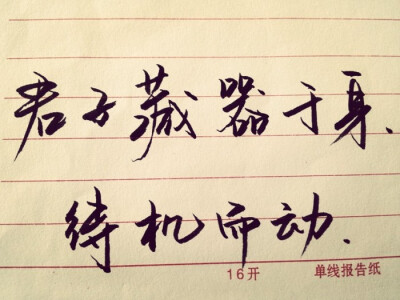 君子藏器于身.
待机而动.
16开 单线报告纸